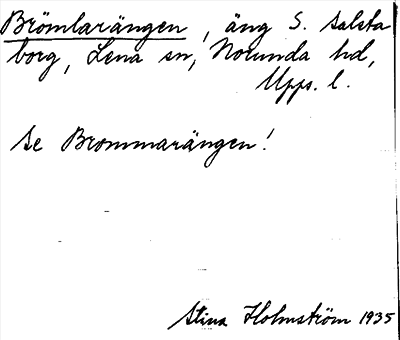 Brömlarängen, äng S. Salsta
borg, Lena sn, Norunda hd,
Upps. l.
Se Brommarängen!
Stina Holmström 1935